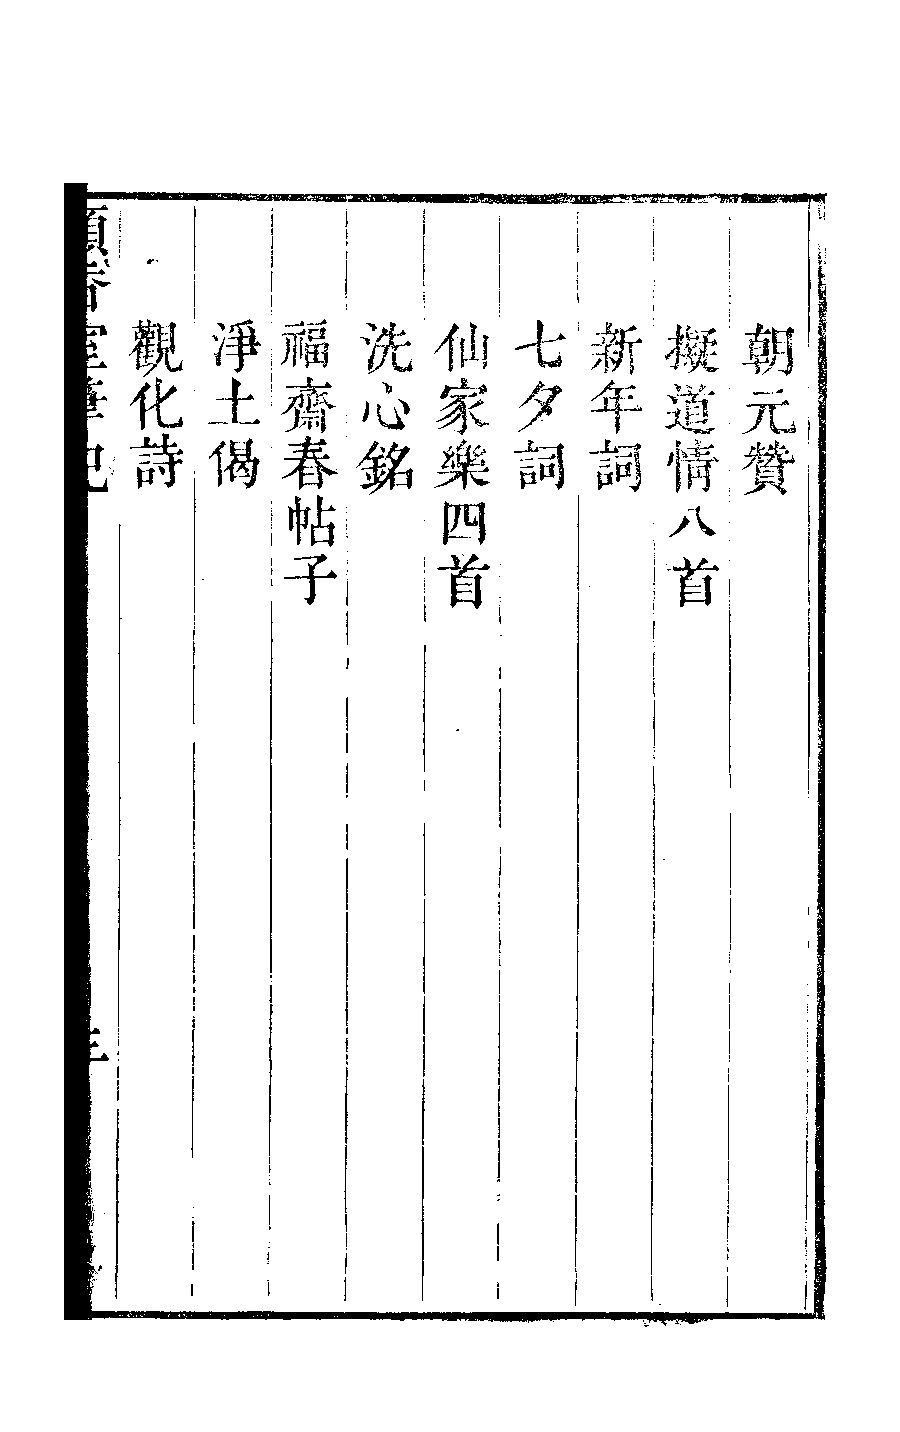 朝元贊
擬道情八首
新年詞
七夕詞
仙家樂四首
洗心銘
福齋春帖子
淨土偈
觀化詩